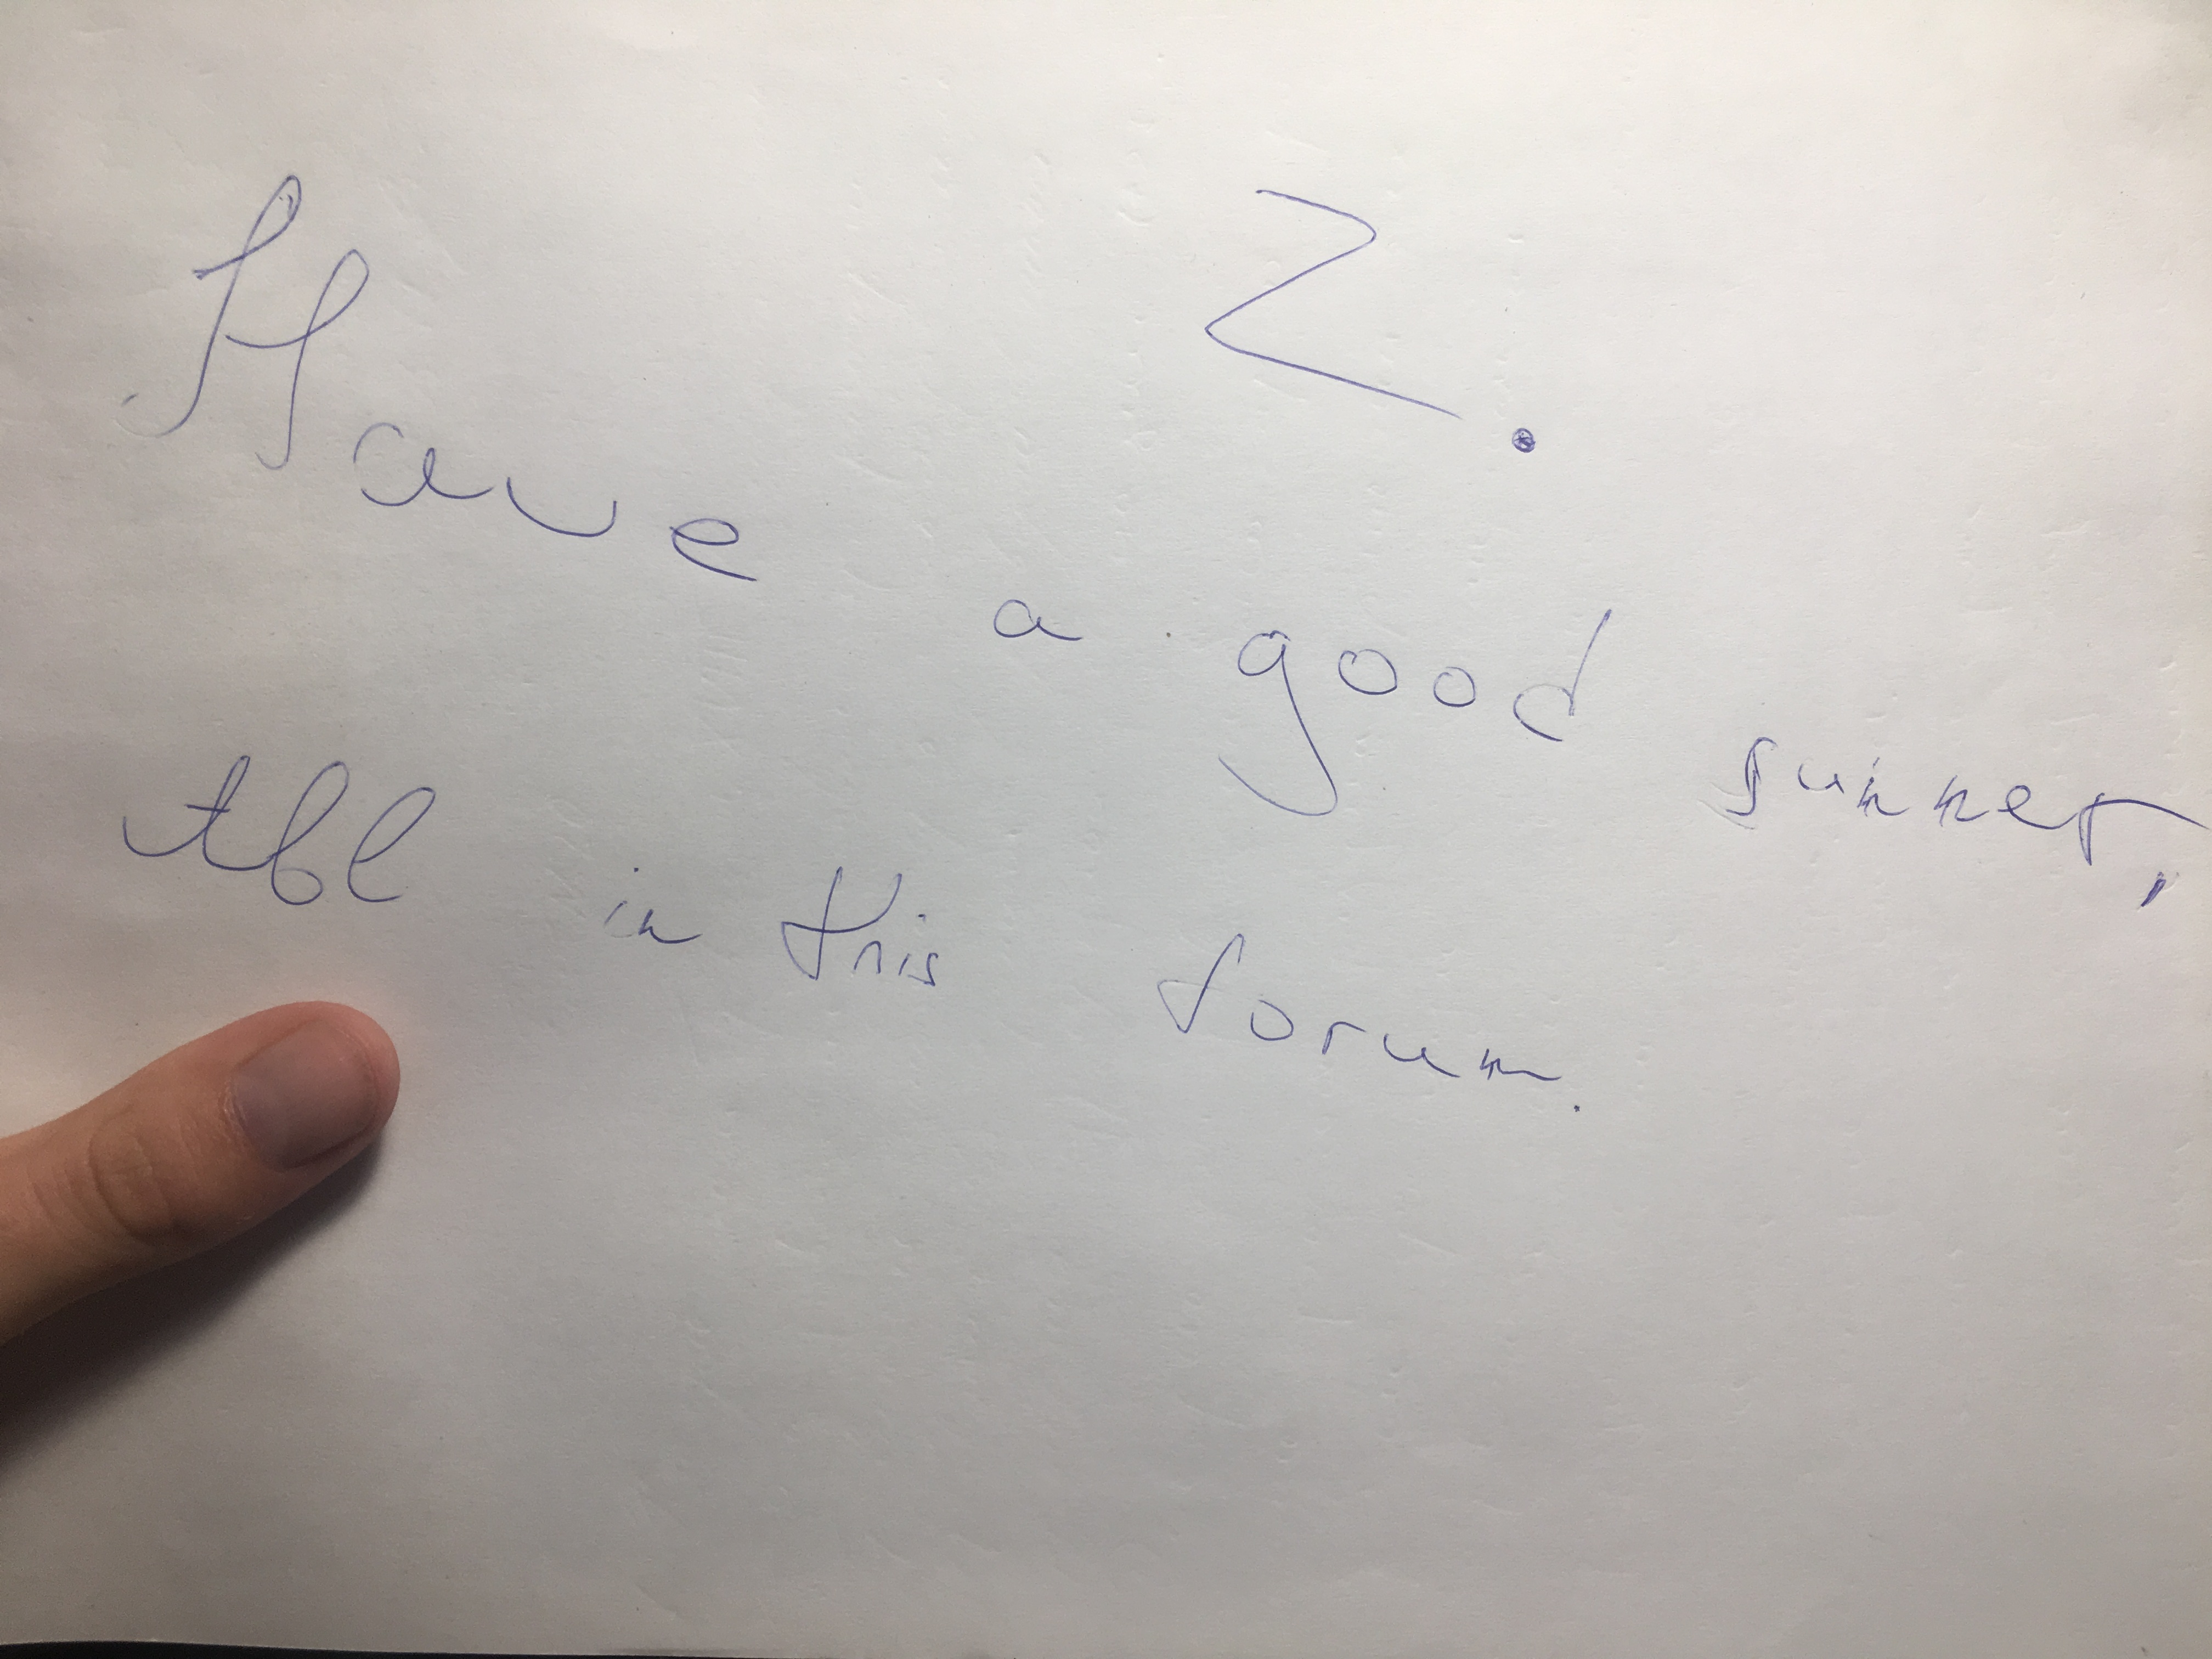 Z.
Have a good summer,
tbl in this forum.